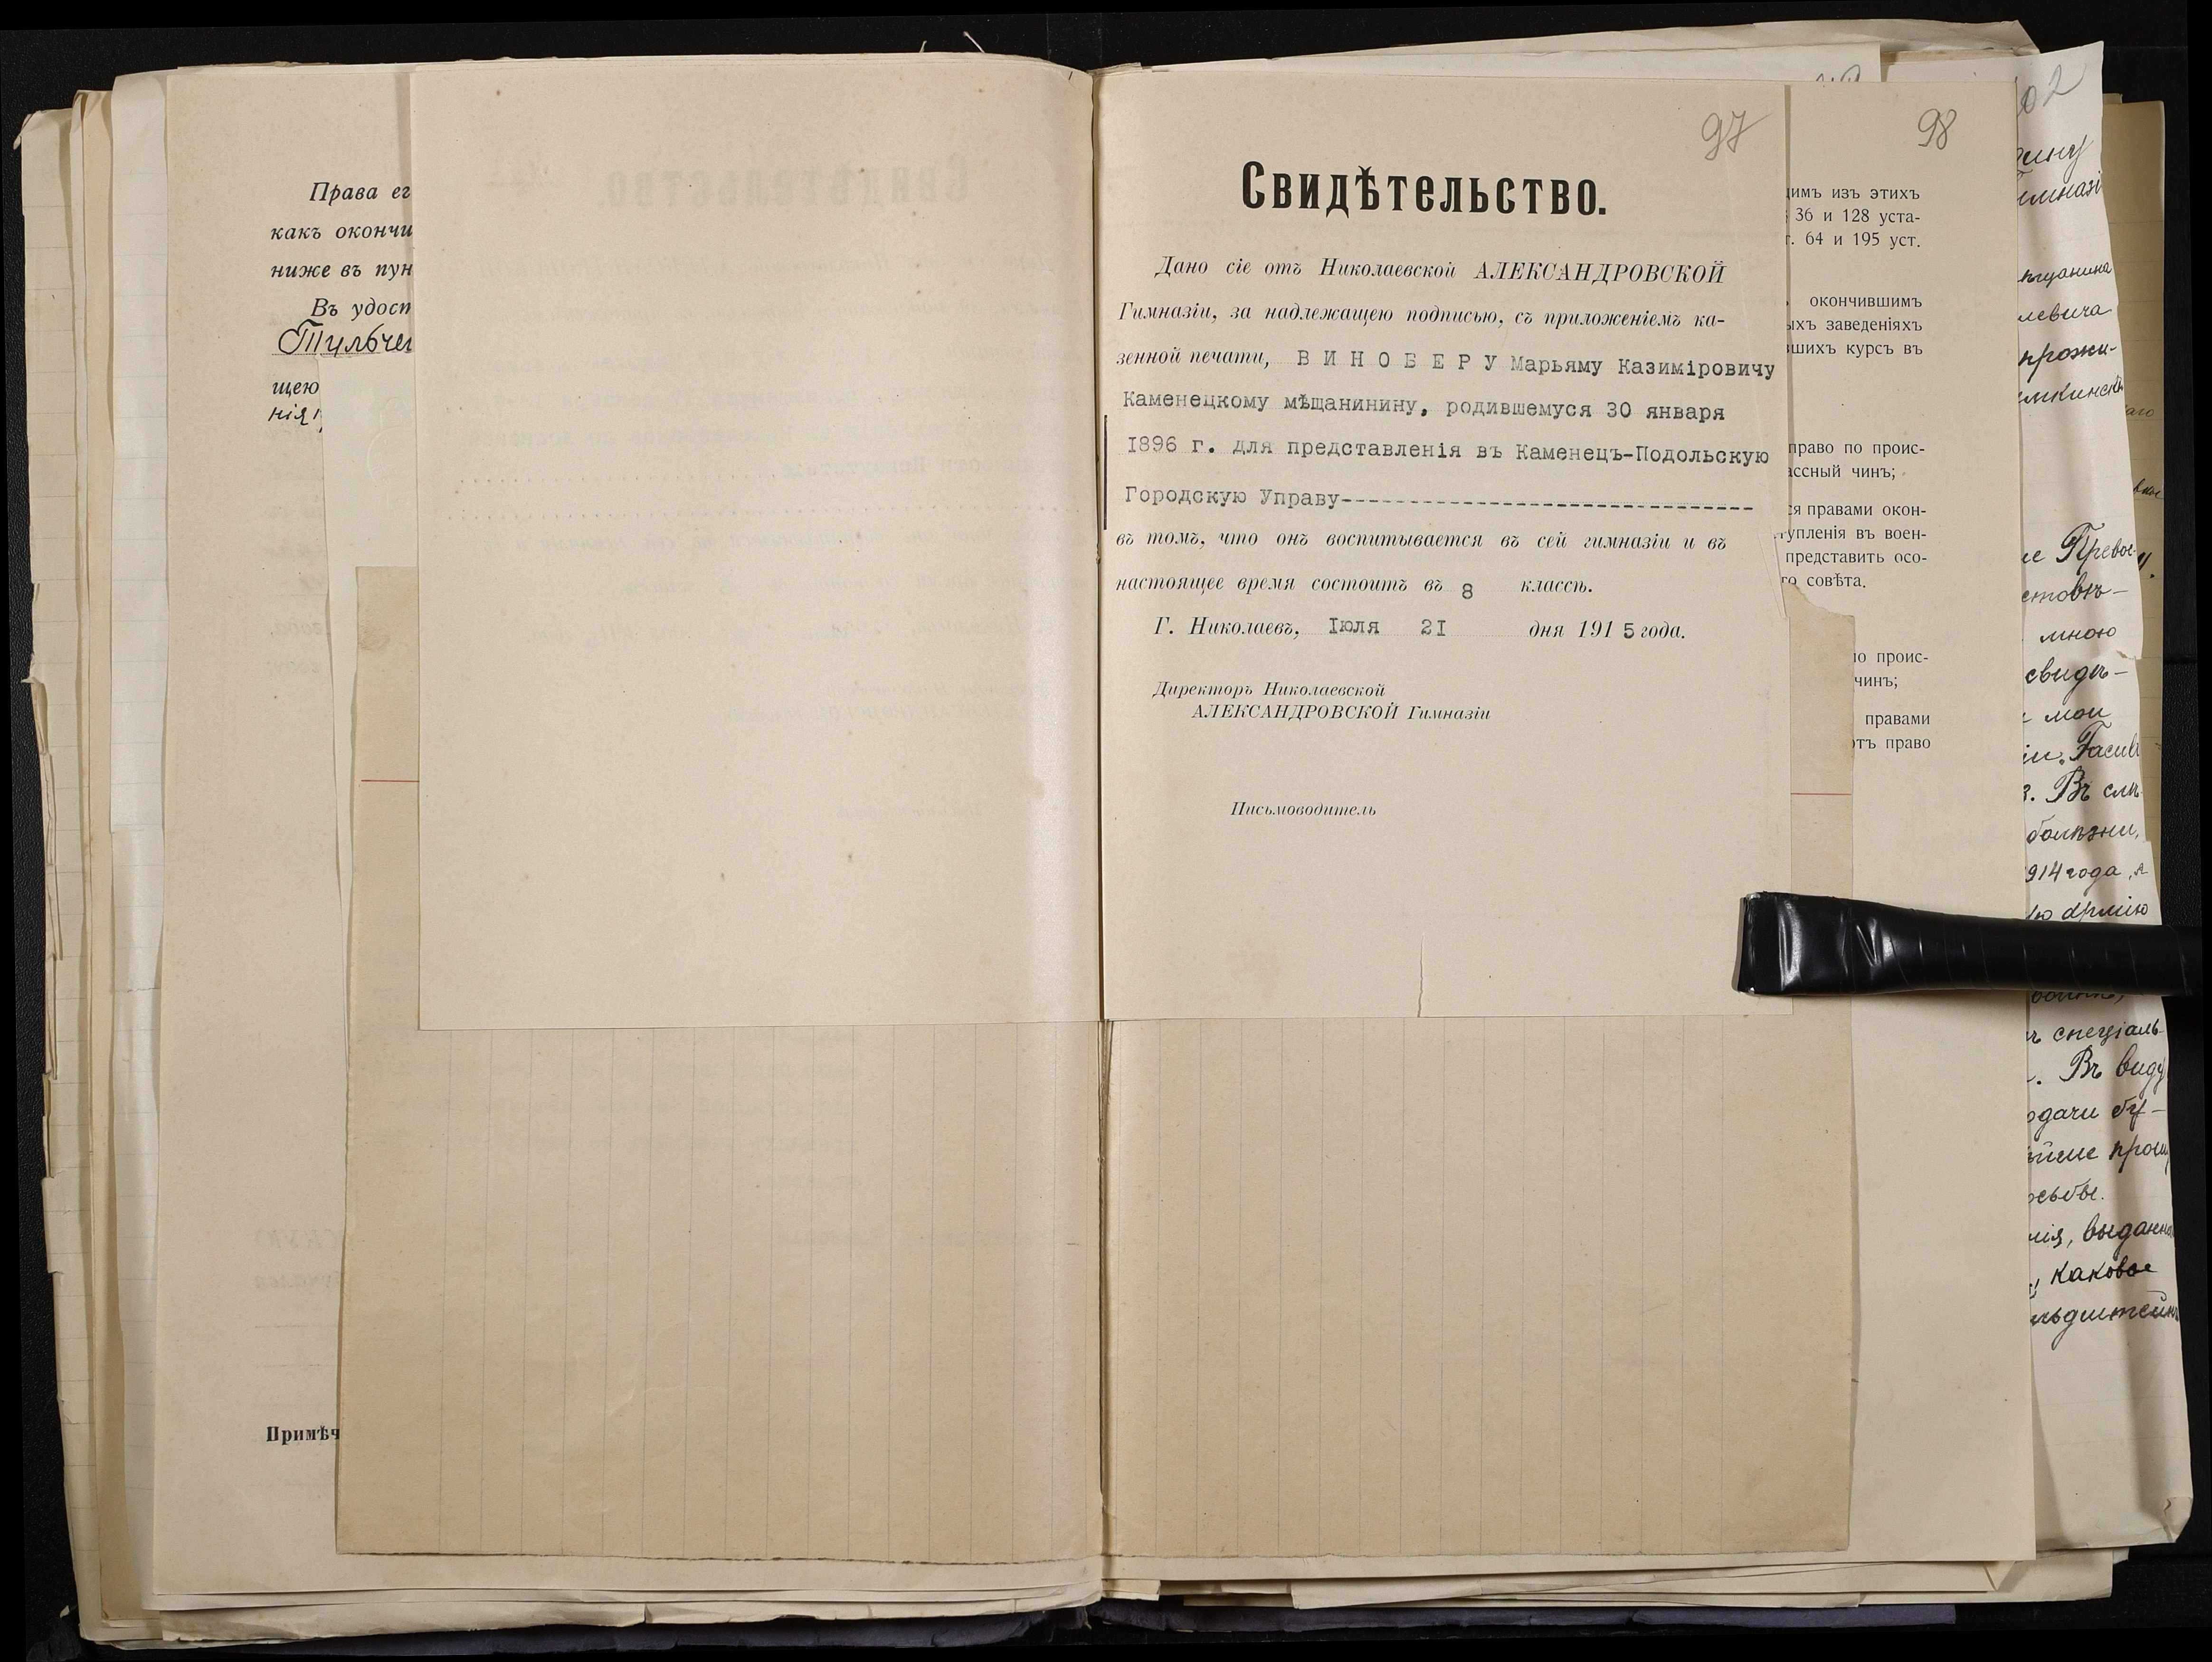 Права ег
какъ окончи
ниже въ пун
Въ удост
Тульчи
щею
нія,
Примѣч
97
Свидѣтельство.
Дано сіе отъ Николаевской АЛЕКСАНДРОВСКОЙ
Гимназіи, за надлежащею подписью, съ приложеніемъ ка-
зенной печати, ВИНОБЕРУ Марьяму Казиміровичу
Каменецкому мѣщанинину, родившемуся 30 января
1896 г. для представленія въ Каменецъ-Подольскую
Городскую Управу-------------------------------
въ томъ, что онъ воспитывается въ сей гимназіи и въ
настоящее время состоитъ въ 8 классѣ.
Г. Николаевъ, Іюля 21 дня 1915 года.
Директоръ Николаевской
АЛЕКСАНДРОВСКОЙ Гимназіи
Письмоводитель
98
имъ изъ этихъ
36 и 128 уста-
г. 64 и 195 уст.
окончившимъ
ыхъ заведеніяхъ
вшихъ курсъ въ
право по проис-
ассный чинъ;
ся правами окон-
упленія въ воен-
представить осо-
го совѣта.
по проис-
чинъ;
правами
отъ право
02
имназі
левича
прожи-
ие Превос-
мною
свидѣ-
мои
Въ слѣ
болѣзни,
914 года, я
ю армію
ъ спеціаль-
Въ виду
одачи бу-
осьбе.
нія, выданна
каковое